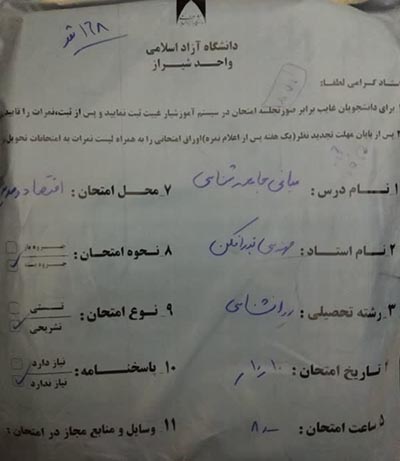 ۱۶۸ نفر
دانشگاه آزاد اسلامی
واحد شیراز
ستاد گرامی لطفا:
برای دانشجویان غایب برابر صورتجلسه امتحان در سیستم آموزشیار غیبت ثبت نمایید و پس از ثبت، نمرات را تایید
۲ پس از پایان مهلت تجدید نظر (یک هفته پس از اعلام نمره) اوراق امتحانی را به همراه لیست نمرات به امتحانات تحویل
۱ نام درس: مبانی جامعه شناسی
۷_ محل امتحان: اقتصاد و
۲_ نام استاد:
۸_ نحوه امتحان: جزوه باز
جزوه بسته
۳_ رشته تحصیلی: روانشناسی
۹_ نوع امتحان: تستی
تشریحی
تاریخ امتحان: ۱۰/۱۰
۱۰_ پاسخنامه: نیاز دارد
نیاز ندارد
۵ ساعت امتحان: ۸
۱۱ وسایل و منابع مجاز در امتحان: